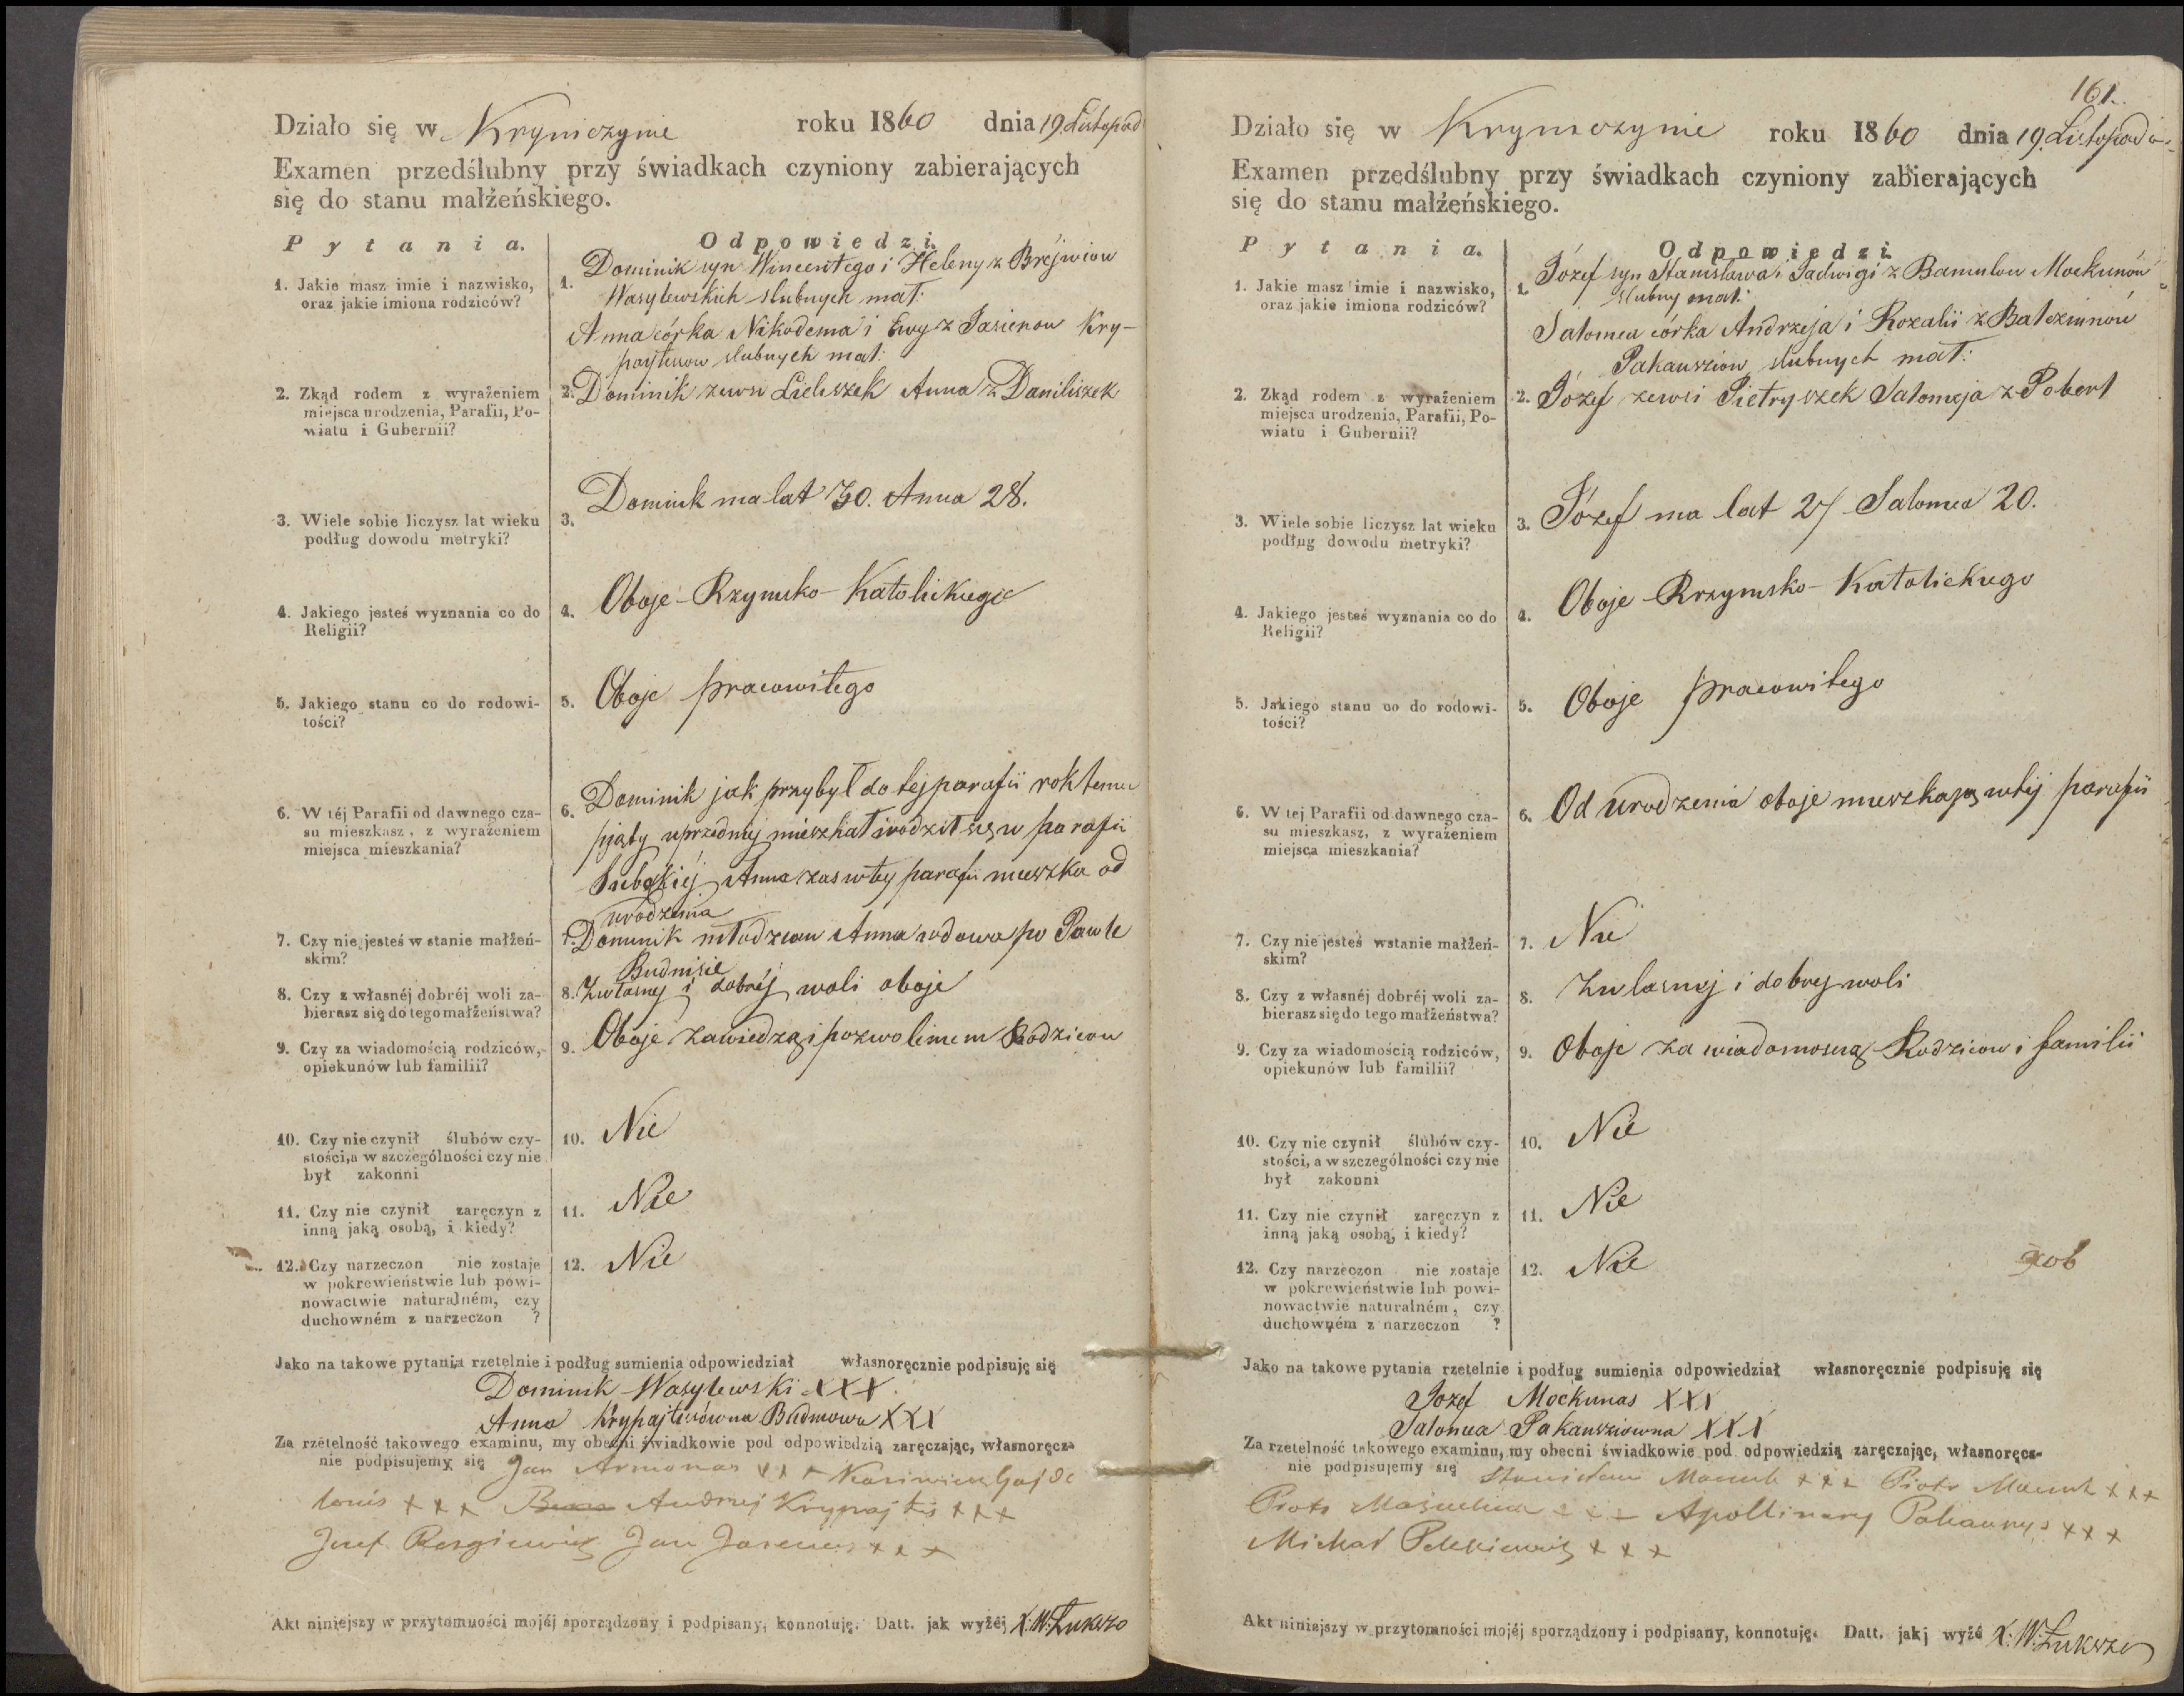 Działo się w Kryniczynie roku 1860 dnia 19. Listopad
Examen przedślubny przy świadkach czyniony zabierających
się do stanu małżeńskiego.
Pytania. Odpowiedzi.
1. Jakie masz imie i nazwisko,
oraz jakie imiona rodziców?
1. Dominik syn Wincentego i Heleny z Brejwiow
Wasylewskich slubnych mat:
Anna córka Nikodema i Ewy z Jasienow Kry-
pajtisow slubnych mat:
2. Zkąd rodem z wyrażeniem
miejsca urodzenia, Parafii, Po-
wiatu i Gubernii?
2. Dominik zewsi Lieluszek Anna z Daniliszek
3. Wiele sobie liczysz lat wieku
podług dowodu metryki?
3. Dominik ma lat 30. Anna 28.
4. Jakiego jesteś wyznania co do
Religii?
4. Oboje Rzymsko-Katolickiego
5. Jakiego stanu co do rodowi-
tości?
5. Oboje pracowitego
6. W téj Parafii od dawnego cza-
su mieszkasz, z wyrażeniem
miejsca mieszkania?
6. Dominik jak przybył do tej parafii rok temu
piąty uprzedniej mieszkał i rodził się w parafii
Anna zas w tey parafii mieszka od
urodzenia
7. Czy nie jesteś w stanie małżeń-
skim?
7. Dominik młodzian Anna wdowa po Pawle
Budnisie
8. Czy z własnéj dobréj woli za-
bierasz się do tego małżeństwa?
8. Zwłasnej i dobréj woli oboje
9. Czy za wiadomością rodziców,
opiekunów lub familii?
9. Oboje zawiedzą i pozwoleniem Rodzicow
10. Czy nie czynił ślubów czy-
stości, a w szczególności czy nie
był zakonni
10. Nie
11. Czy nie czynił zaręczyn z
inną jaką osobą, i kiedy?
11. Nie
12. Czy narzeczon nie zostaje
w pokrewieństwie lub powi-
nowactwie naturalném, czy
duchowném z narzeczon ?
12. Nie
Jako na takowe pytania rzetelnie i podług sumienia odpowiedział własnoręcznie podpisuję się
Dominik Wasylewski XXX
Anna Krypajtisówna Budniowa XXX
Za rzetelność takowego examinu, my obecni świadkowie pod odpowiedzią zaręczając, własnoręcz-
nie podpisujemy się Jan Armonas x x x Kazimierz Gajde
lonis x x x Andrzej Krypajtis x x x
Jozef Jan x x x
Akt niniejszy w przytomności mojéj sporządzony i podpisany, konnotuję. Datt. jak wyżéj X. W. Łukszo
161.
Działo się w Kryniczynie roku 1860 dnia 19. Listopada
Examen przedślubny przy świadkach czyniony zabierających
się do stanu małżeńskiego.
Pytania. Odpowiedzi.
1. Jakie masz imie i nazwisko,
oraz jakie imiona rodziców?
1. Józef syn Stanisława i Jadwigi z Bamulow Mockunów
slubny mat:
Salomea córka Andrzeja i Rozalii z Balczunów
Pakauszien slubnych mat:
2. Zkąd rodem z wyrażeniem
miejsca urodzenia, Parafii, Po-
wiatu i Gubernii?
2. Józef zewsi Pietryszek Salomeja z Pobert
3. Wiele sobie liczysz lat wieku
podług dowodu metryki?
3. Józef ma lat 27 Salomea 20.
4. Jakiego jesteś wyznania co do
Religii?
4. Oboje Rzymsko-Katolickiego
5. Jakiego stanu co do rodowi-
tości?
5. Oboje pracowitego
6. W tej Parafii od dawnego cza-
su mieszkasz, z wyrażeniem
miejsca mieszkania?
6. Od urodzenia oboje mieszkają wtéj parafii
7. Czy nie jesteś wstanie małżeń-
skim?
7. Nie
8. Czy z własnéj dobréj woli za-
bierasz się do tego małżeństwa?
8. Zwlasnej i dobrej woli
9. Czy za wiadomością rodziców,
opiekunów lub familii?
9. Oboje za wiadomoscią Rodzicow i familii
10. Czy nie czynił ślubów czy-
stości, a w szczególności czy nie
był zakonni
10. Nie
11. Czy nie czynił zaręczyn z
inną jaką osobą, i kiedy?
11. Nie
12. Czy narzeczon nie zostaje
w pokrewieństwie lub powi-
nowactwie naturalném, czy
duchowném z narzeczon ?
12. Nie
Jako na takowe pytania rzetelnie i podług sumienia odpowiedział własnoręcznie podpisuję się
Jozef Mockunas XXX
Salomea Pakausziowna XXX
Za rzetelność takowego examinu, my obecni świadkowie pod odpowiedzią zaręczając, własnoręcz-
nie podpisujemy się Stanisław x x x Piotr x x x
Piotr x x x Apollinary x x x
Michał x x x
Akt niniejszy w przytomności mojéj sporządzony i podpisany, konnotuję. Datt. jakj wyżé X. W. Łukszo